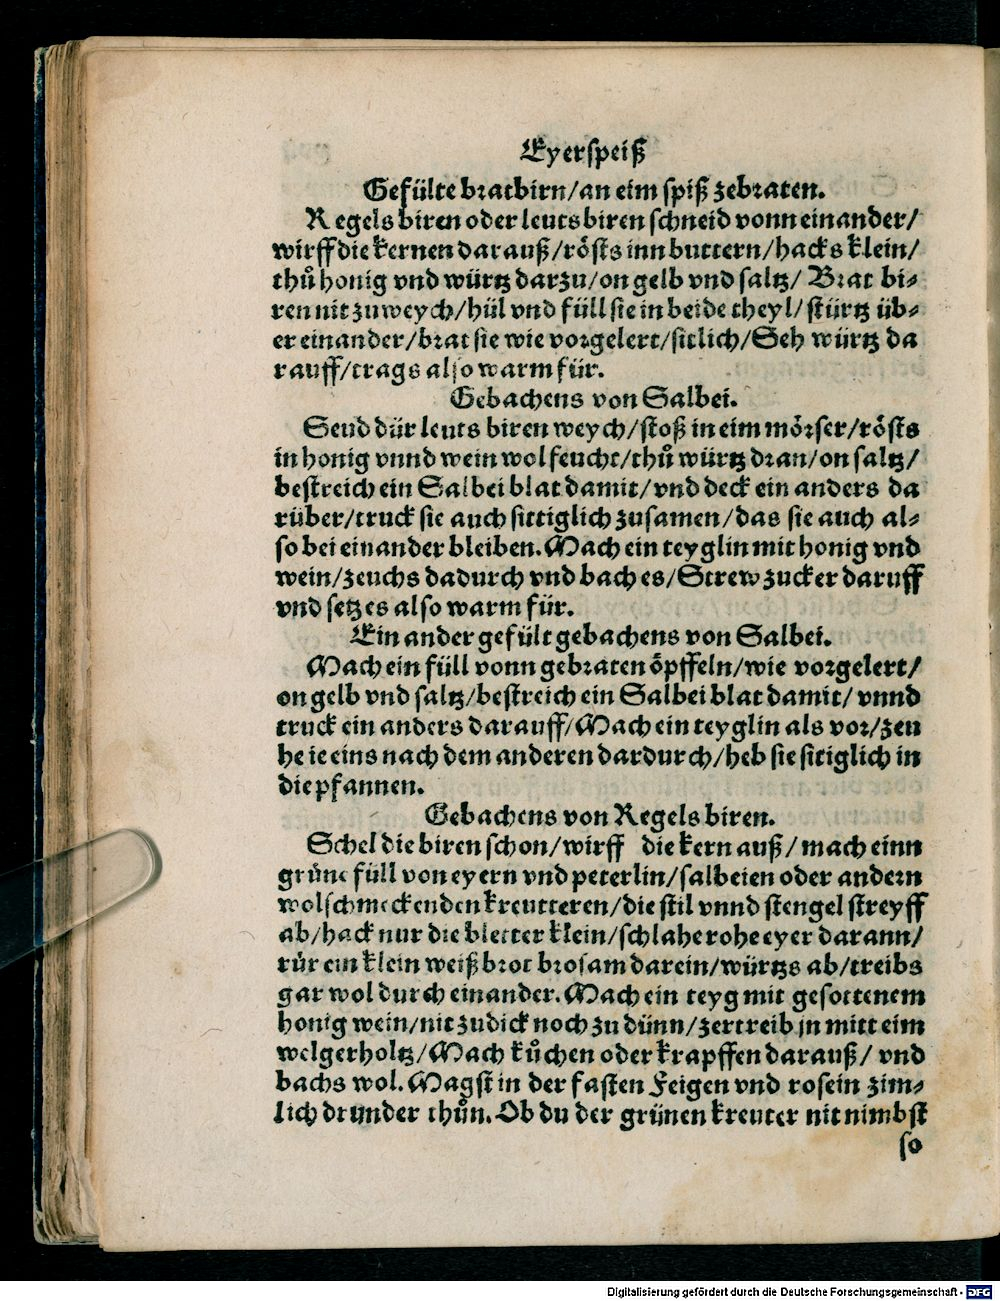 Eyerspeiß
Gefülte bratbirn/an eim spiß zebraten.
Regels biren oder leuts biren schneid vonn einander/
wirff die kernen darauß/rösts inn buttern/hacks klein/
thů honig vnd würtz darzu/on gelb vnd saltz/ Brat bi-
ren nit zu weych/hül vnd füll sie in beide theyl/stürtz üb-
er einander/brat sie wie vorgelert/sitlich/Seh würtz da
rauff/trags also warm für.
Gebachens von Salbei.
Seud dür leuts biren weych/stoß in eim mörser/rösts
in honig vnnd wein wol feucht/thů würtz dran/on saltz/
bestreich ein Salbei blat damit/vnd deck ein anders da
rüber/truck sie auch sittiglich zusamen/das sie auch al-
so bei einander bleiben. Mach ein teyglin mit honig vnd
wein/zeuchs dadurch vnd bach es/Strew zucker daruff
vnd setz es also warm für.
Ein ander gefült gebachens von Salbei.
Mach ein füll vonn gebraten öpffeln/wie vorgelert/
on gelb vnd saltz/bestreich ein Salbei blat damit/ vnnd
truck ein anders darauff/Mach ein teyglin als vor/zeu
he ie eins nach dem anderen dardurch/heb sie sitiglich in
die pfannen.
Gebachens von Regels biren.
Schel die biren schon/wirff die kern auß/ mach einn
grüne füll von eyern vnd peterlin/salbeien oder andern
wolschmeckenden kreutteren/die stil vnnd stengel streyff
ab/hack nur die bletter klein/schlahe rohe eyer darann/
rür ein klein weiß brot brosam darein/würtzs ab/treibs
gar wol durch einander. Mach ein teyg mit gesottenem
honig wein/nit zu dick noch zu dünn/zertreib jn mitt eim
welgerholtz/Mach kůchen oder krapffen darauß/ vnd
bachs wol. Magst in der fasten Feigen vnd rosein zim-
lich drunder thůn. Ob du der grünen kreuter nit nimbst
so
Digitalisierung gefördert durch die Deutsche Forschungsgemeinschaft - DFG